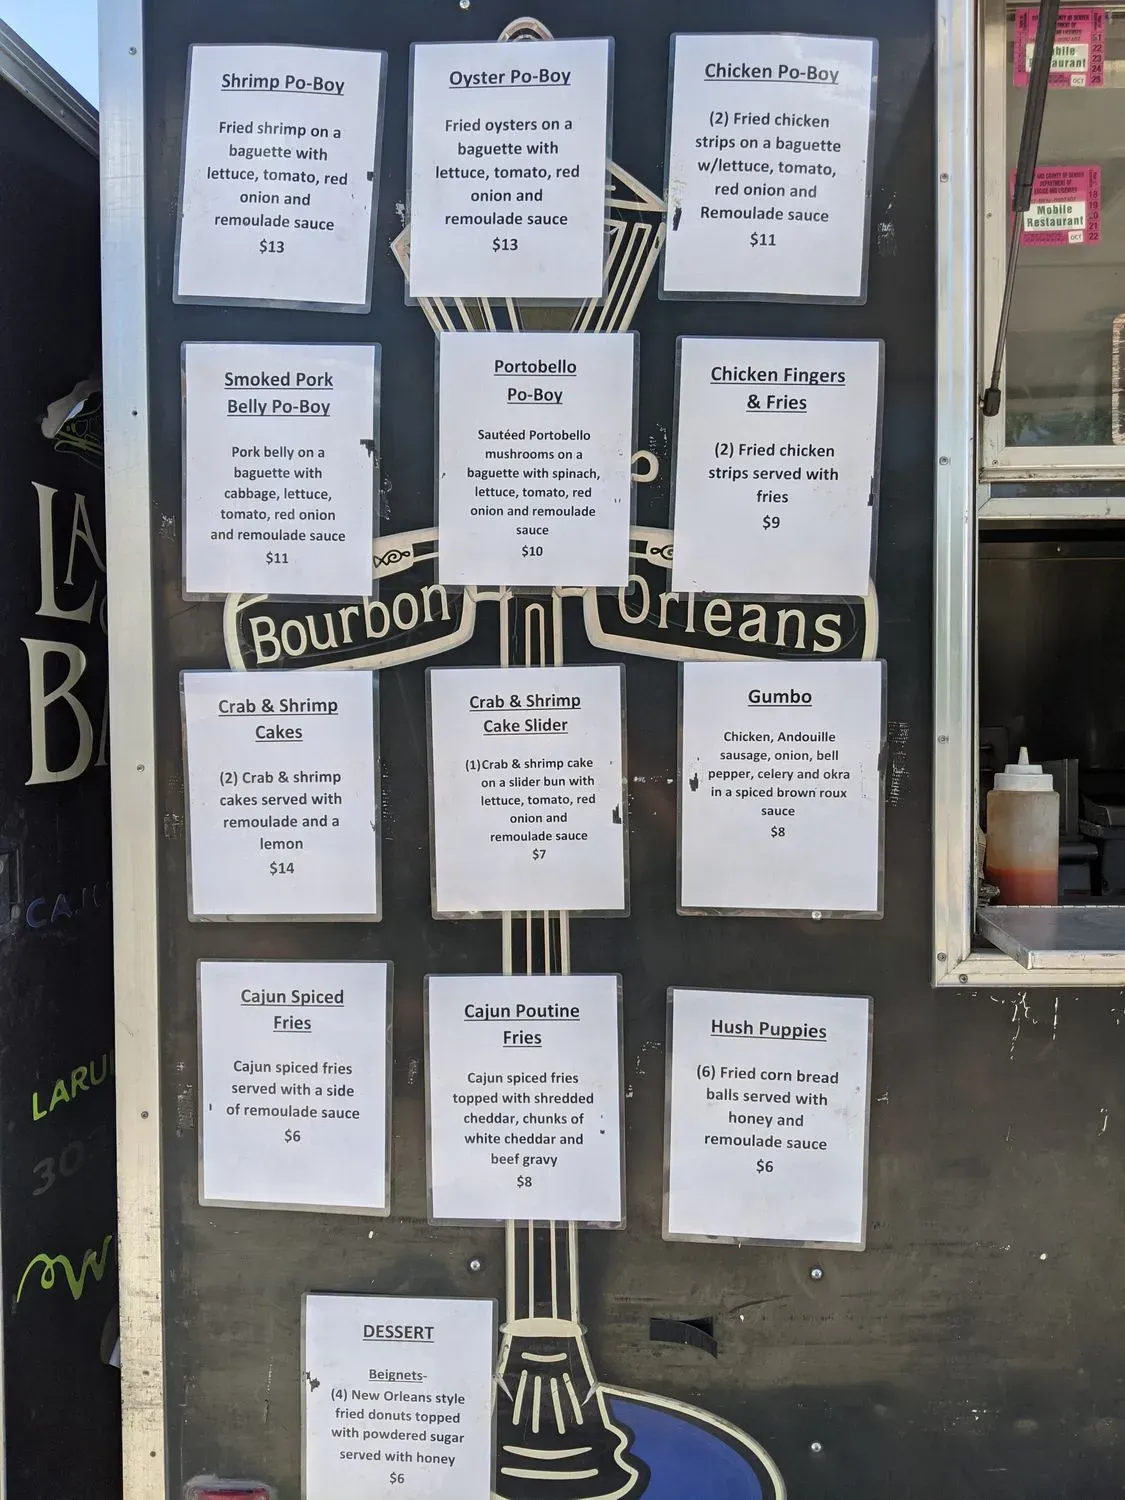 Shrimp Po-Boy
Fried shrimp on a
baguette with
lettuce, tomato, red
onion and
remoulade sauce
$13
Oyster Po-Boy
Fried oysters on a
baguette with
lettuce, tomato, red
onion and
remoulade sauce
$13
Chicken Po-Boy
(2) Fried chicken
strips on a baguette
w/lettuce, tomato,
red onion and
Remoulade sauce
$11
Smoked Pork
Belly Po-Boy
Pork belly on a
baguette with
cabbage, lettuce,
tomato, red onion
and remoulade sauce
$11
Portobello
Po-Boy
Sautéed Portobello
mushrooms on a
baguette with spinach,
lettuce, tomato, red
onion and remoulade
sauce
$10
Chicken Fingers
& Fries
(2) Fried chicken
strips served with
fries
$9
Bourbon
Orleans
Crab & Shrimp
Cakes
(2) Crab & shrimp
cakes served with
remoulade and a
lemon
$14
Crab & Shrimp
Cake Slider
(1)Crab & shrimp cake
on a slider bun with
lettuce, tomato, red
onion and
remoulade sauce
$7
Gumbo
Chicken, Andouille
sausage, onion, bell
pepper, celery and okra
in a spiced brown roux
sauce
$8
Cajun Spiced
Fries
Cajun spiced fries
served with a side
of remoulade sauce
$6
Cajun Poutine
Fries
Cajun spiced fries
topped with shredded
cheddar, chunks of
white cheddar and
beef gravy
$8
Hush Puppies
(6) Fried corn bread
balls served with
honey and
remoulade sauce
$6
DESSERT
Beignets-
(4) New Orleans style
fried donuts topped
with powdered sugar
served with honey
$6
Mobile
Restaurant
OCT
18
19
21
22
22
23
24
25
OCT